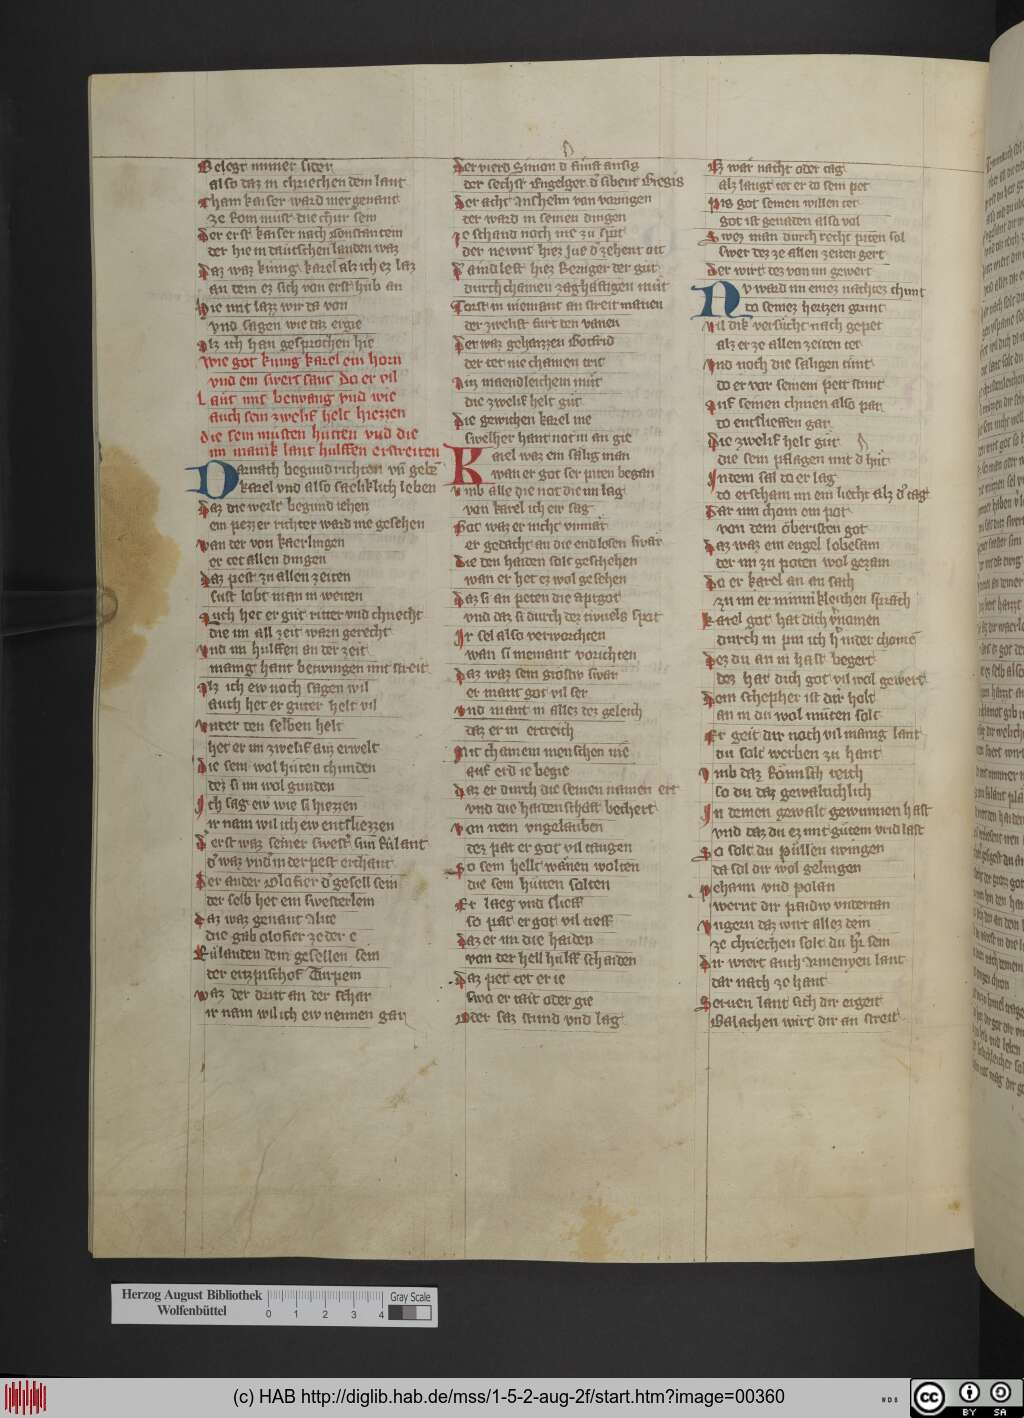 Belegt immer sider
also daz in chriechen dem lant
Cham kaiser ward mer genant
ze Rom must die chur sein
Der erst kaiser nach Constantein
der hie in dautschen landen waz
Daz waz kunig karel alz ich ez laz
an dem ez sich von erst hub an
Hie mit lazz wir da von
vnd sagen wie daz ergie
Alz ich han gesprochen hie
Wie got kunig karel ein horn
vnd ein swert sant Do er vil
Lant mit betwang vnd wie
auch sein zwelif helt hiezzen
die sein musten hutten vnd die
im manik lant hulffen erstreiten
Darnach begund richten vn̄ gebē
karel vnd also saeliklich leben
Daz die weilt begund iehen
ein pezzer richter ward nie gesehen
wan der von kaerlingen
er tet allen dingen
Daz pest zu allen zeiten
Sust lobt man in weiten
Auch het er gut ritter vnd chnecht
die im all zeit warn gerecht
Vnd im hulffen an der zeit
manig hant betwingen mit streit
Alz ich ew noch sagen wil
auch het er guter helt vil
Vnter den selben helt
het er im zwelif auz erwelt
Die sein wol huten chunden
dez si im wol gunden
Ich sag ew wie si hiezzen
ir nam wil ich ew entsliezzen
D erst waz seiner swest sun Rulant
d waz vnd in der pest erchant
Der ander Olofier d gesell sein
der selb het ein swesterlein
Daz waz genant Alite
die gab olofier ze der e
Rulanden dem gesellen sein
der ertzpischof Turpein
waz der dritt an der schar
ir nam wil ich ew nennen gar
Der vierd Simon d funft ansis
der sechst Engelger d sibent Gregis
Der acht Anshelm von vanigen
der ward in seinen dingen
ze schand noch nie zu spot
der newnt hiez Jue d zehent ott
D aindleft hiez Reniger der gut
durch chainen zaghaftigen mut
Torst in niemant an streit manen
der zwelift furt den vanen
Der waz gehaizzen Gotfrid
der tet nie chainen trit
Auz maendleichem mut
die zwelif helt gut
Die gewichen karel nie
swelher hant not in an gie
Karel waz ein salig man
wan er got ser piten began
Vmb alle die not die im lag
von karel ich ew sag
Got waz er nicht vnmar
er gedacht an die endlosen swar
Die den haiden solt geschehen
wan er het ez wol gesehen
Daz si an peten die aptgot
vnd daz si durch dez tiuuels spot
Ir sel also verworchten
wan si niemant vorichten
Daz waz sein grosiw swar
er mant got vil ser
Vnd mant in allez dez geleich
daz er in ertreich
Mit chainem menschen nie
auf erd ie begie
Daz er durch die seinen namen eit
vnd die haidenschaft bechert
Von irem vngelauben
dez pat er got vil taugen
So sein hellt wanen wolten
die sein hutten solten
Er laeg vnd slieff
so pat er got vil tieff
Daz er im die haiden
von der hell hulff schaiden
Daz pet tet er ie
swo er rait oder gie
Oder saz stund vnd lag
Ez war nacht oder tag
alz laugt tet er do sein pet
Piz got seinen willen tet
got ist genaden also vol
Swez man durch recht piten sol
swer dez ze allen zeiten gert
Der wirt dez von im gewert
Nv ward im einez nachtez chunt
do seinez hertzen grunt
Vil dik versucht nach gepet
alz er ze allen zeiten tet
Vnd noch die saligen tunt
do er vor seinem pett stunt
Auf seinen chnien also par
do entslieffen gar
Die zwelif helt gut
die sein pflagen mit d hut
Indem sal do er lag
do erschain im ein liecht alz d tag
Dar inn chom ein pot
von dem obersten got
Daz waz ein engel lobesam
der im zu poten wol gezam
Do er karel an an sach
zu im er minnikleichen sprach
karel got hat dich vnamen
durch in pin ich h nider chomē
Dez du an in hast begert
dez hat dich got vil wol gewert
Dem schepher ist dir holt
an in du wol muten solt
Er geit dir noch vil manig lant
du solt werben zu hant
Vmb daz Romisch reich
so du daz gewaltichlich
In deinen gewalt gewunnen hast
vnd daz du ez mit gutem vrid last
So solt du Pullen twingen
da sol dir wol gelingen
Pehaim vnd polan
wernt dir paidiw vntertan
Vngern daz wirt allez dein
ze chriechen solt du h sein
Dir wiert auch Armenyen lant
dar nach ze hant
Seruen lant sich dir ergeit
Walachen wirt dir an streit
Herzog August Bibliothek
Wolfenbüttel
0 1 2 3 4
Gray Scale
(c) HAB http://diglib.hab.de/mss/1-5-2-aug-2f/start.htm?image=00360
WDB
cc BY SA